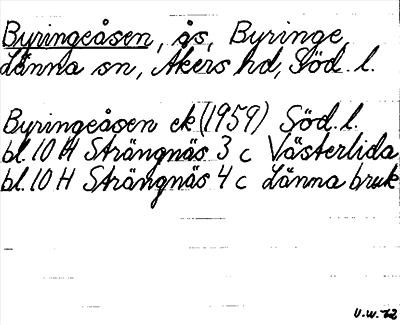 Byringeåsen, ås, Byringe,
Länna sn, Åkers hd, Söd. l.
Byringeåsen ek (1959) Söd. l.
bl. 10 H Strängnäs 3 c Västerlida
bl. 10 H Strängnäs 4 c Länna bruk
U.W-72